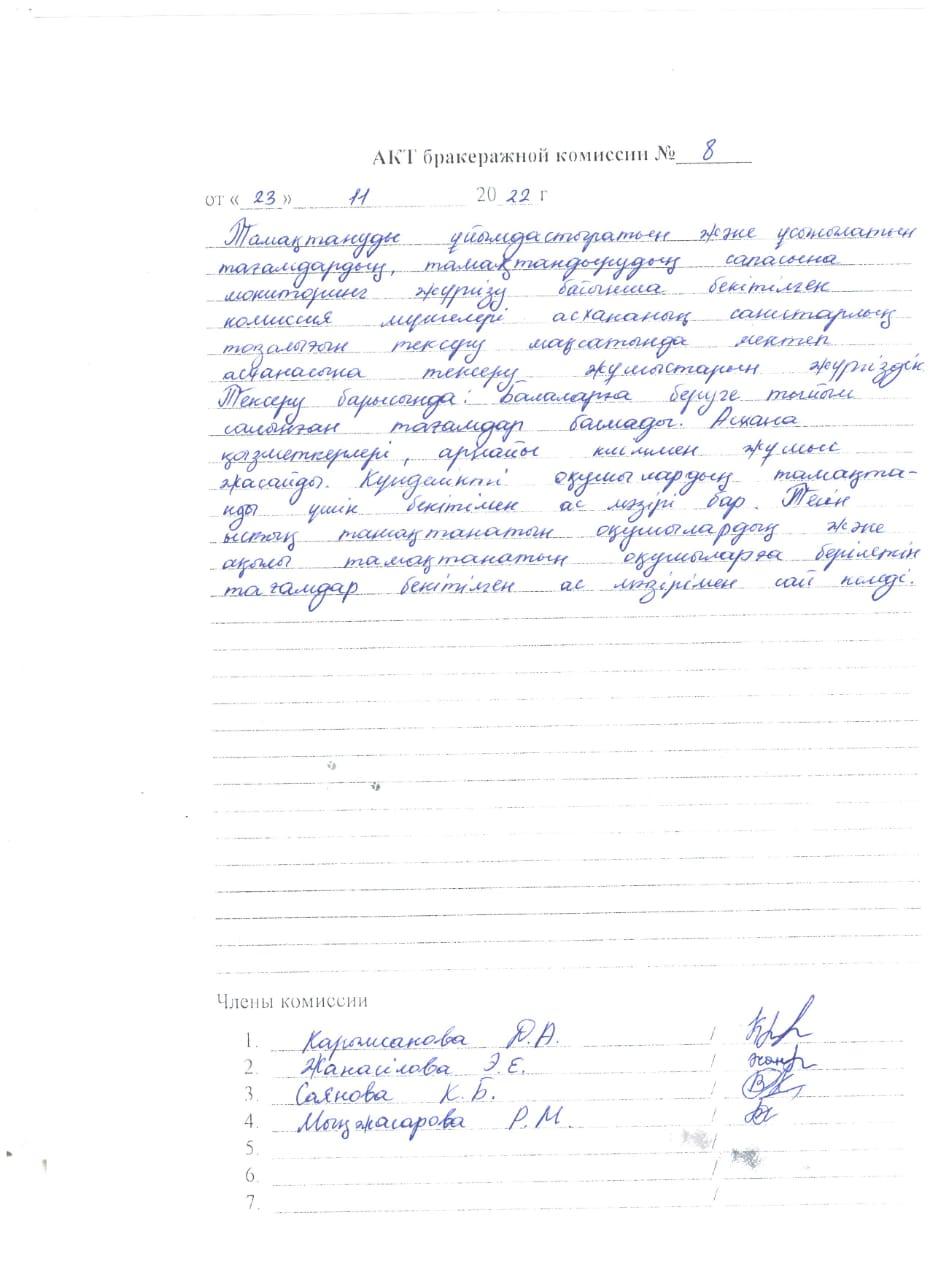 АКТ бракеражной комиссии № 8
от « 23 » 11 20 22 г
Тамақтануды ұйымдастыратын және ұсынылатын
тағамдардың, тамақтандырудың сапасына
мониторинг жүргізу бойынша бекітілген
комиссия мүшелері асхананың санитарлық
тазалығын тексеру мақсатында мектеп
асханасына тексеру жұмыстарын жүргіздік
Тексеру барысында: Балаларға беруге тыйым
салынған тағамдар болмады. Асхана
қызметкерлері, арнайы киіммен жұмыс
жасайды. Күнделікті оқушылардың тамақта-
нды үшін бекітілген ас мәзірі бар. Тегін
ыстық тамақтанатын оқушылардың және
ақылы тамақтанатын оқушыларға берілетін
тағамдар бекітілген ас мәзірімен сай келеді.
Члены комиссии
1. Карымсакова Р.А. /
2. Жанасілова Э.Е. /
3. Саянова К.Б. /
4. Мыңжасарова Р.М. /
5. /
6. /
7. /